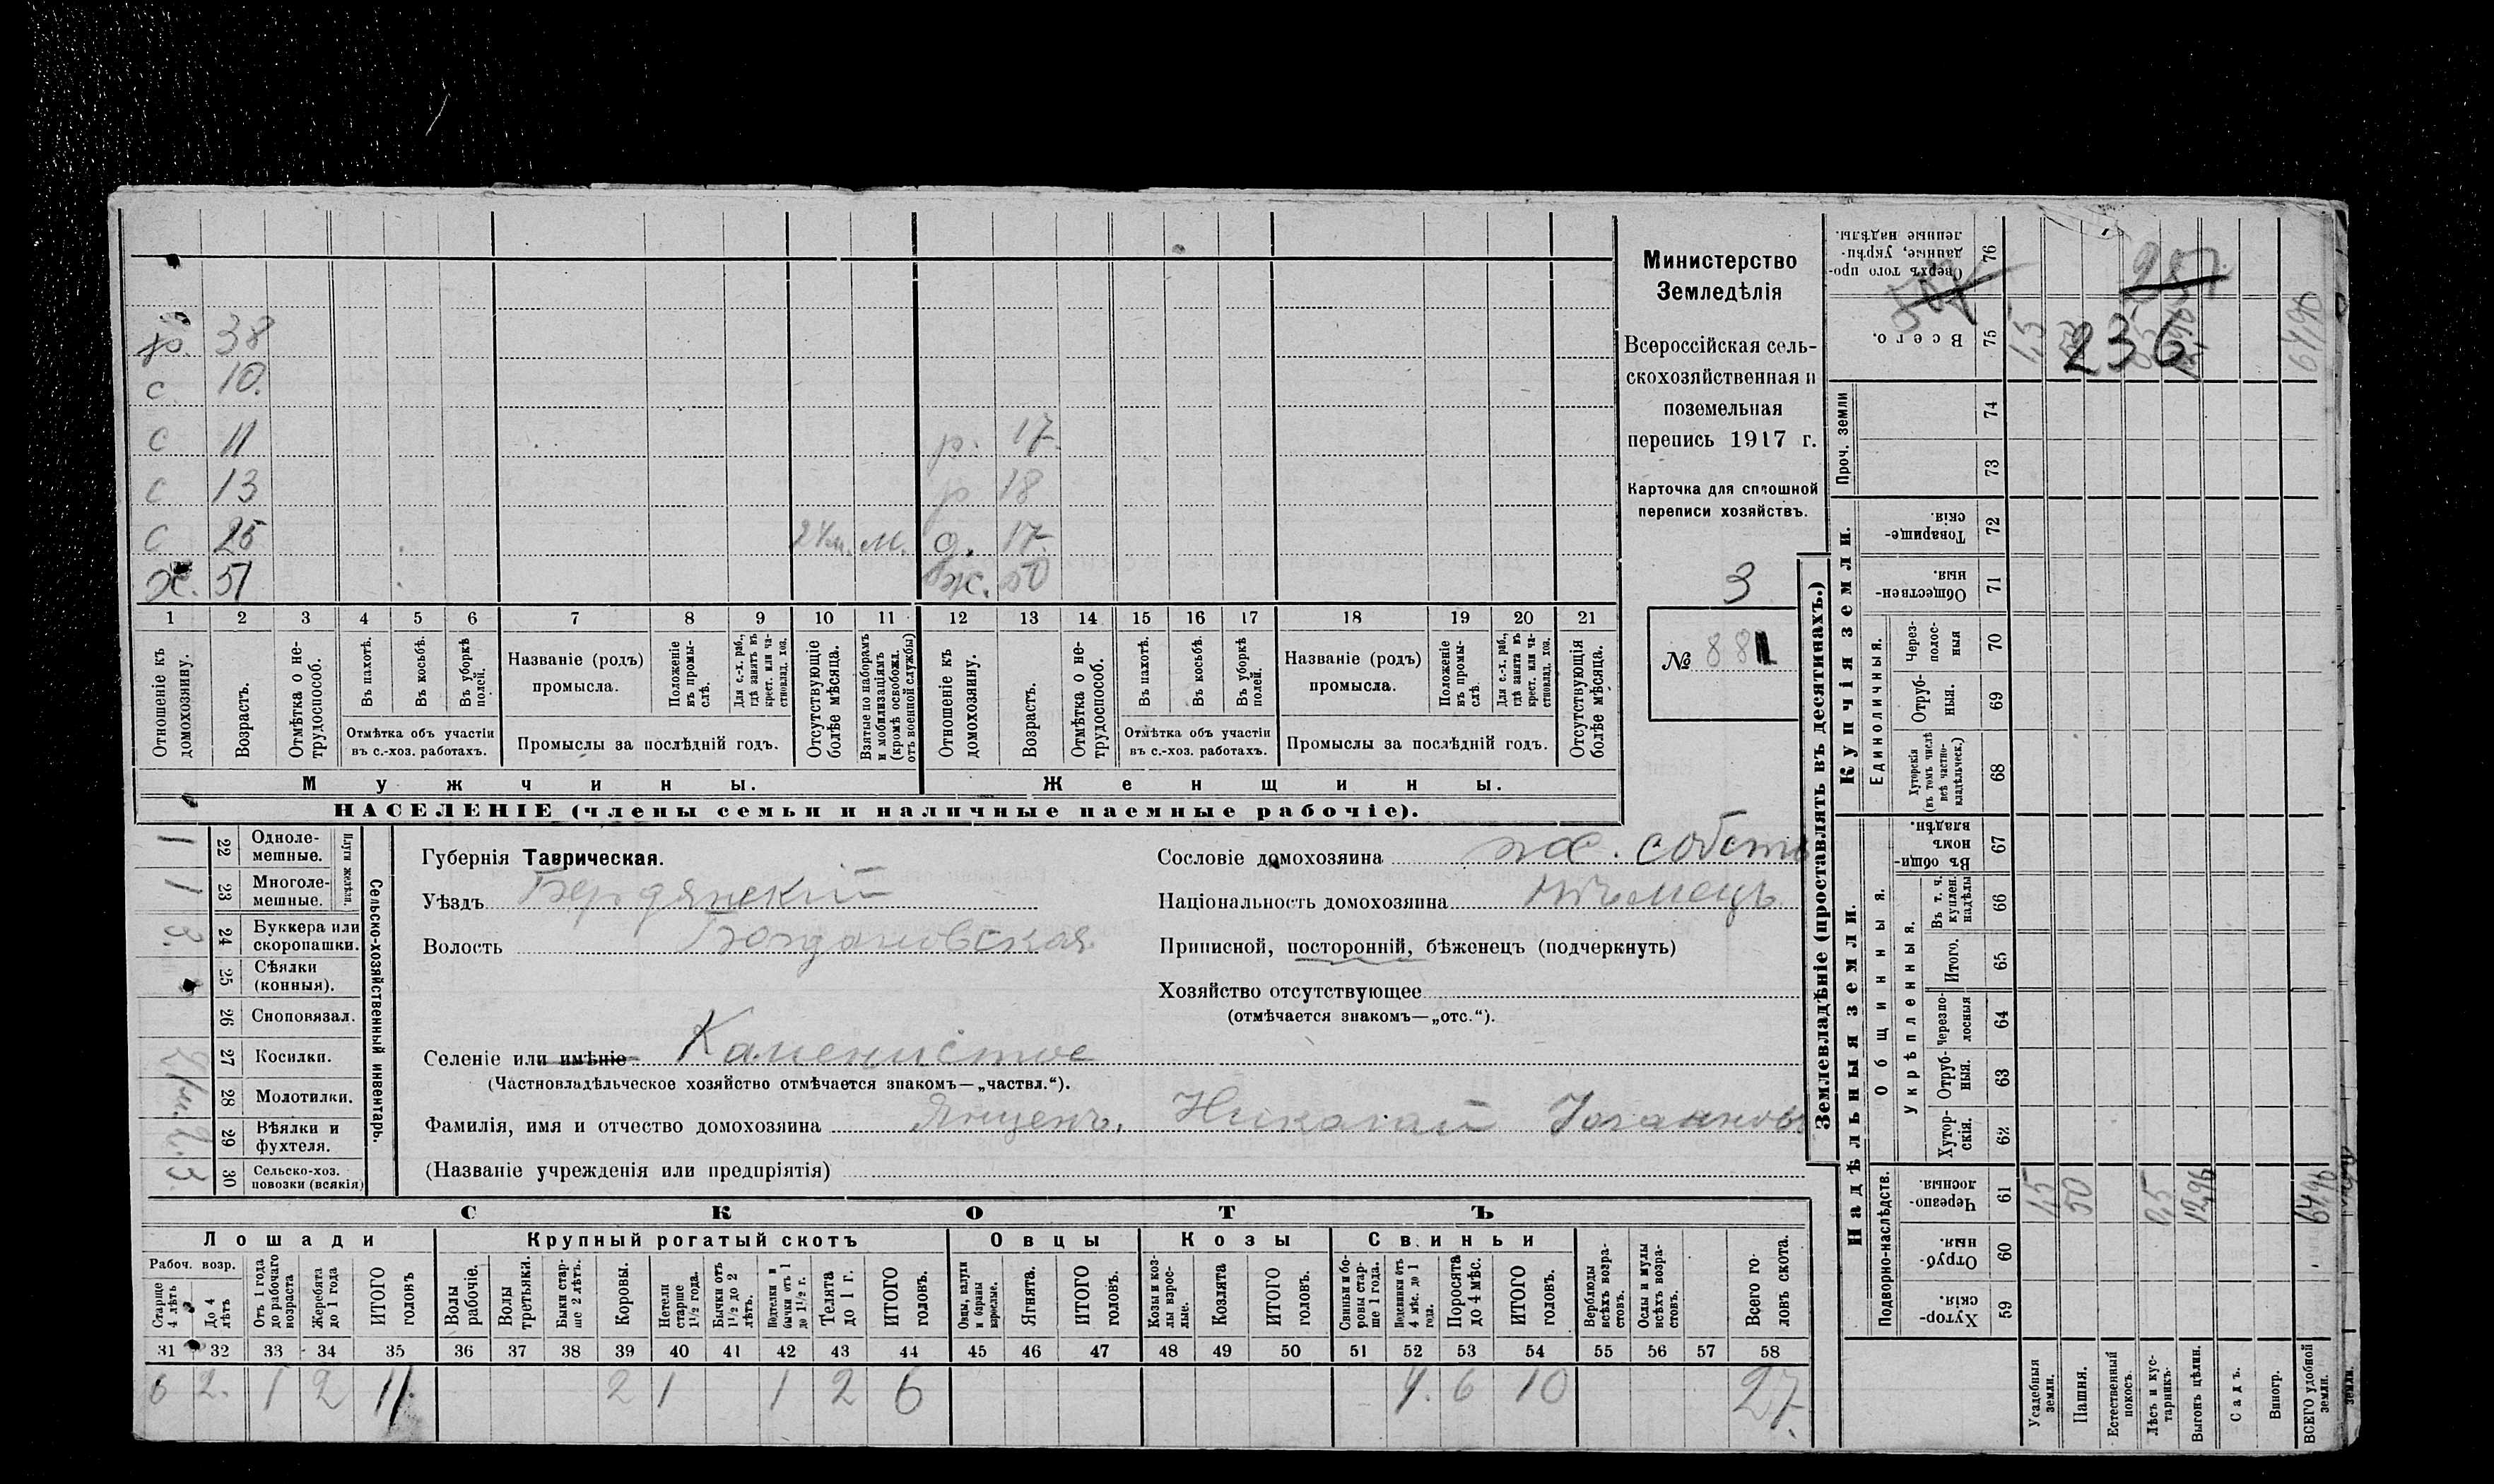 Министерство
Земледѣлія
Всероссійская сель-
скохозяйственная и
поземельная
перепись 1917 г.
Карточка для сплошной
переписи хозяйствъ.
3
№ 88
р. 38
с 10.
с 11
с 13 р 18
с 25 м. д. 17
х. 51 ж. 50
р. 17
1 2 3 4 5 6 7 8 9 10 11 12 13 14 15 16 17 18 19 20 21
Отношеніе къ домохозяину.
Возрастъ.
Отмѣтка о не-трудоспособ.
Въ пахотѣ.
Въ косьбѣ.
Въ уборкѣ полей.
Отмѣтка объ участіи
въ с.-хоз. работахъ.
Названіе (родъ)
промысла.
Положеніе въ промы-слѣ.
Для с.-х. раб., гдѣ занятъ въ крест. или ча-стновлад. хоз.
Промыслы за послѣдній годъ.
Отсутствующіе болѣе мѣсяца.
Взятые по наборамъ и мобилизаціямъ (кромѣ освобожд. отъ военной службы)
Отношеніе къ домохозяину.
Возрастъ.
Отмѣтка о не-трудоспособ.
Въ пахотѣ.
Въ косьбѣ.
Въ уборкѣ полей.
Отмѣтка объ участіи
въ с.-хоз. работахъ.
Названіе (родъ)
промысла.
Положеніе въ промы-слѣ.
Для с.-х. раб., гдѣ занята въ крест. или ча-стновлад. хоз.
Промыслы за послѣдній годъ.
Отсутствующія болѣе мѣсяца.
Мужчины. Женщины.
НАСЕЛЕНІЕ (члены семьи и наличные наемные рабочіе).
Сельско-хозяйственный инвентарь.
Плуги желѣзн.
22 Одноле-мешные. 1
23 Многоле-мешные. 1
24 Буккера или скоропашки. 3
25 Сѣялки (конныя).
26 Сноповязал.
27 Косилки.
28 Молотилки.
29 Вѣялки и фухтеля. 2
30 Сельско-хоз. повозки (всякія) 3
Губернія Таврическая.
Уѣздъ Бердянскій
Волость Богдановская
Селеніе или имѣніе Каменистое
(Частновладѣльческое хозяйство отмѣчается знакомъ—„частвл.“).
Фамилія, имя и отчество домохозяина Янценъ, Николай Іоганнов
(Названіе учрежденія или предпріятія)
Сословіе домохозяина собств
Національность домохозяина нѣмецъ
Приписной, посторонній, бѣженецъ (подчеркнуть)
Хозяйство отсутствующее
(отмѣчается знакомъ—„отс.“).
СКОТЪ
Лошади Крупный рогатый скотъ Овцы Козы Свиньи
Рабоч. возр.
Старше 4 лѣтъ
До 4 лѣтъ
Отъ 1 года до рабочаго возраста
Жеребята до 1 года
ИТОГО головъ
Волы рабочіе.
Волы третьяки.
Быки стар-ше 2 лѣтъ.
Коровы.
Нетели старше 1½ года.
Бычки отъ 1½ до 2 лѣтъ.
Подтелки и бычки отъ 1 до 1½ г.
Телята до 1 г.
ИТОГО головъ.
Овцы, валухи и бараны взрослые.
Ягнята.
ИТОГО головъ.
Козы и коз-лы взрос-лые.
Козлята
ИТОГО головъ.
Свиньи и бо-ровы стар-ше 1 года.
Подсвинки отъ 4 мѣс. до 1 года.
Поросята до 4 мѣс.
ИТОГО головъ.
Верблюды всѣхъ возра-стовъ.
Ослы и мулы всѣхъ возра-стовъ.
Всего го-ловъ скота.
31 32 33 34 35 36 37 38 39 40 41 42 43 44 45 46 47 48 49 50 51 52 53 54 55 56 57 58
6 2. 1 2 11. 2 1 1 2 6 4. 6 10 27.
Землевладѣніе (проставлять въ десятинахъ.)
Купчія земли.
Надѣльныя земли.
Проч. земли
Единоличныя.
Общинныя.
Укрѣпленныя.
Подворно-наслѣдств.
Сверхъ того про-данные, укрѣп-ленные надѣлы. 76
Всего. 75
74
73
Товарище-скія. 72
Обществен-ныя. 71
Через-полос-ныя 70
Отруб-ныя. 69
Хуторскія (въ томъ числѣ всѣ частно-владѣльческ.) 68
Въ общи-номъ владѣн. 67
Въ т. ч. куплен. надѣлы 66
Итого. 65
Черезпо-лосныя 64
Отруб-ныя. 63
Хутор-скія. 62
Черезпо-лосныя. 61
Отруб-ныя. 60
Хутор-скія. 59
236
1,5
64,96
1,5 50 0,5 12,96 64,96
Усадебныя земли.
Пашня.
Естественный покосъ.
Лѣсъ и кус-тарникъ.
Выгонъ цѣлин.
Садъ.
Виногр.
ВСЕГО удобной земли.
земли.